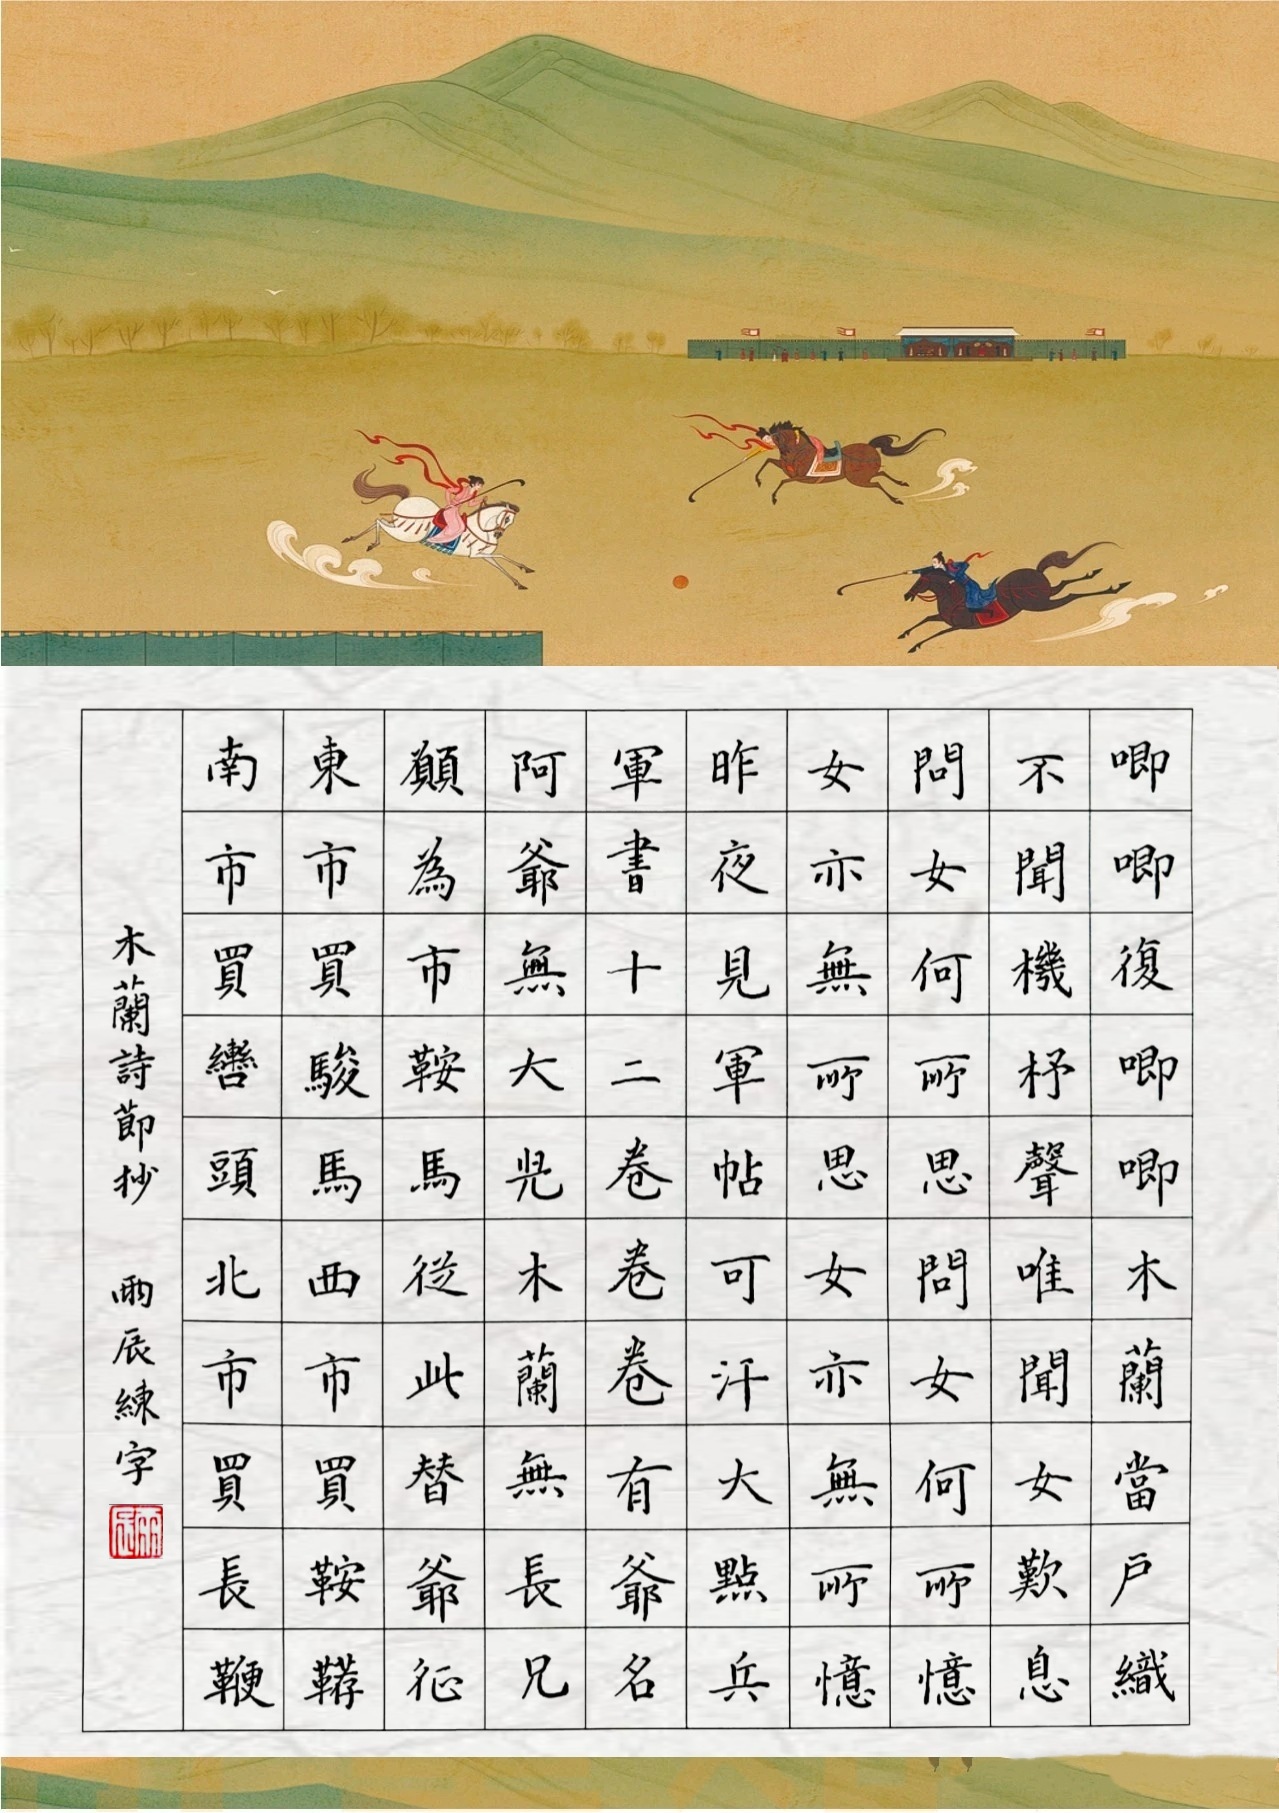 唧唧復唧唧木蘭當戶織
不聞機杼聲唯聞女歎息
問女何所思問女何所憶
女亦無所思女亦無所憶
昨夜見軍帖可汗大點兵
軍書十二卷卷卷有爺名
阿爺無大兒木蘭無長兄
願為市鞍馬從此替爺征
東市買駿馬西市買鞍韉
南市買轡頭北市買長鞭
木蘭詩節抄 雨辰練字
雨辰